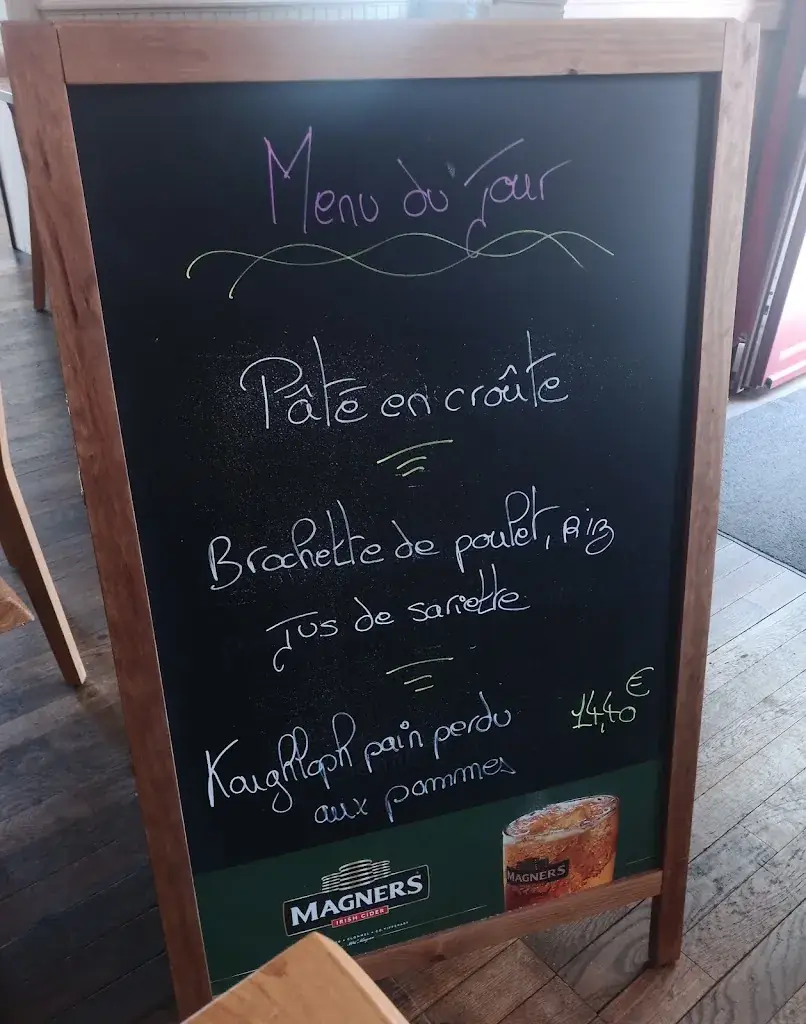 Menu du Jour
Pâté en croûte
Brochette de poulet, Riz
Jus de sariette
Kaughlaph pain perdu
aux pommes
14,40€
MAGNERS
IRISH CIDER
MAGNERS